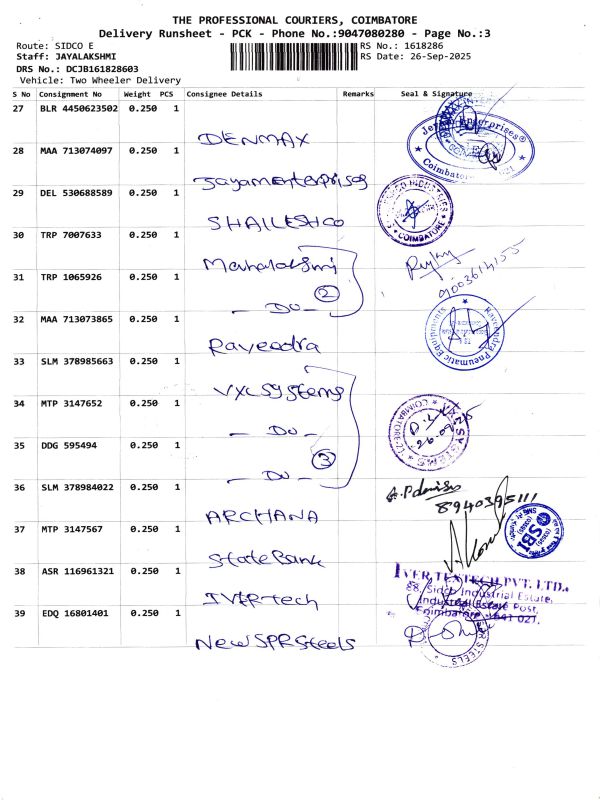 THE PROFESSIONAL COURIERS, COIMBATORE
Delivery Runsheet - PCK - Phone No.:9047080280 - Page No.:3
Route: SIDCO E
RS No.: 1618286
Staff: JAYALAKSHMI
RS Date: 26-Sep-2025
DRS No.: DCJB161828603
Vehicle: Two Wheeler Delivery
S No Consignment No Weight PCS Consignee Details Remarks Seal & Signature
27 BLR 4450623502 0.250 1
DENMAX
28 MAA 713074097 0.250 1
Jayam Enterprises
Enterprises®
Coimbatore
29 DEL 530688589 0.250 1
SHAILESHCO
INDUSTRIES
COIMBATURE
30 TRP 7007633 0.250 1
Mahalakshmi
9003614155
31 TRP 1065926 0.250 1
- Do - 2
32 MAA 713073865 0.250 1
Raveedra
Raveendra Pneumatic Equipments
33 SLM 378985663 0.250 1
VXL Systems
34 MTP 3147652 0.250 1
- Do -
SYSTEMS
COIMBATORE
35 DDG 595494 0.250 1
- Do - 3
36 SLM 378984022 0.250 1
ARCHANA
8940395111
37 MTP 3147567 0.250 1
State Bank
SBI
38 ASR 116961321 0.250 1
IVER tech
IVER TEXTECH PVT. LTD.,
Sidco Industrial Estate,
Industrial Estate Post,
Coimbatore - 641 021.
39 EDQ 16801401 0.250 1
New SPR Steels
STEELS